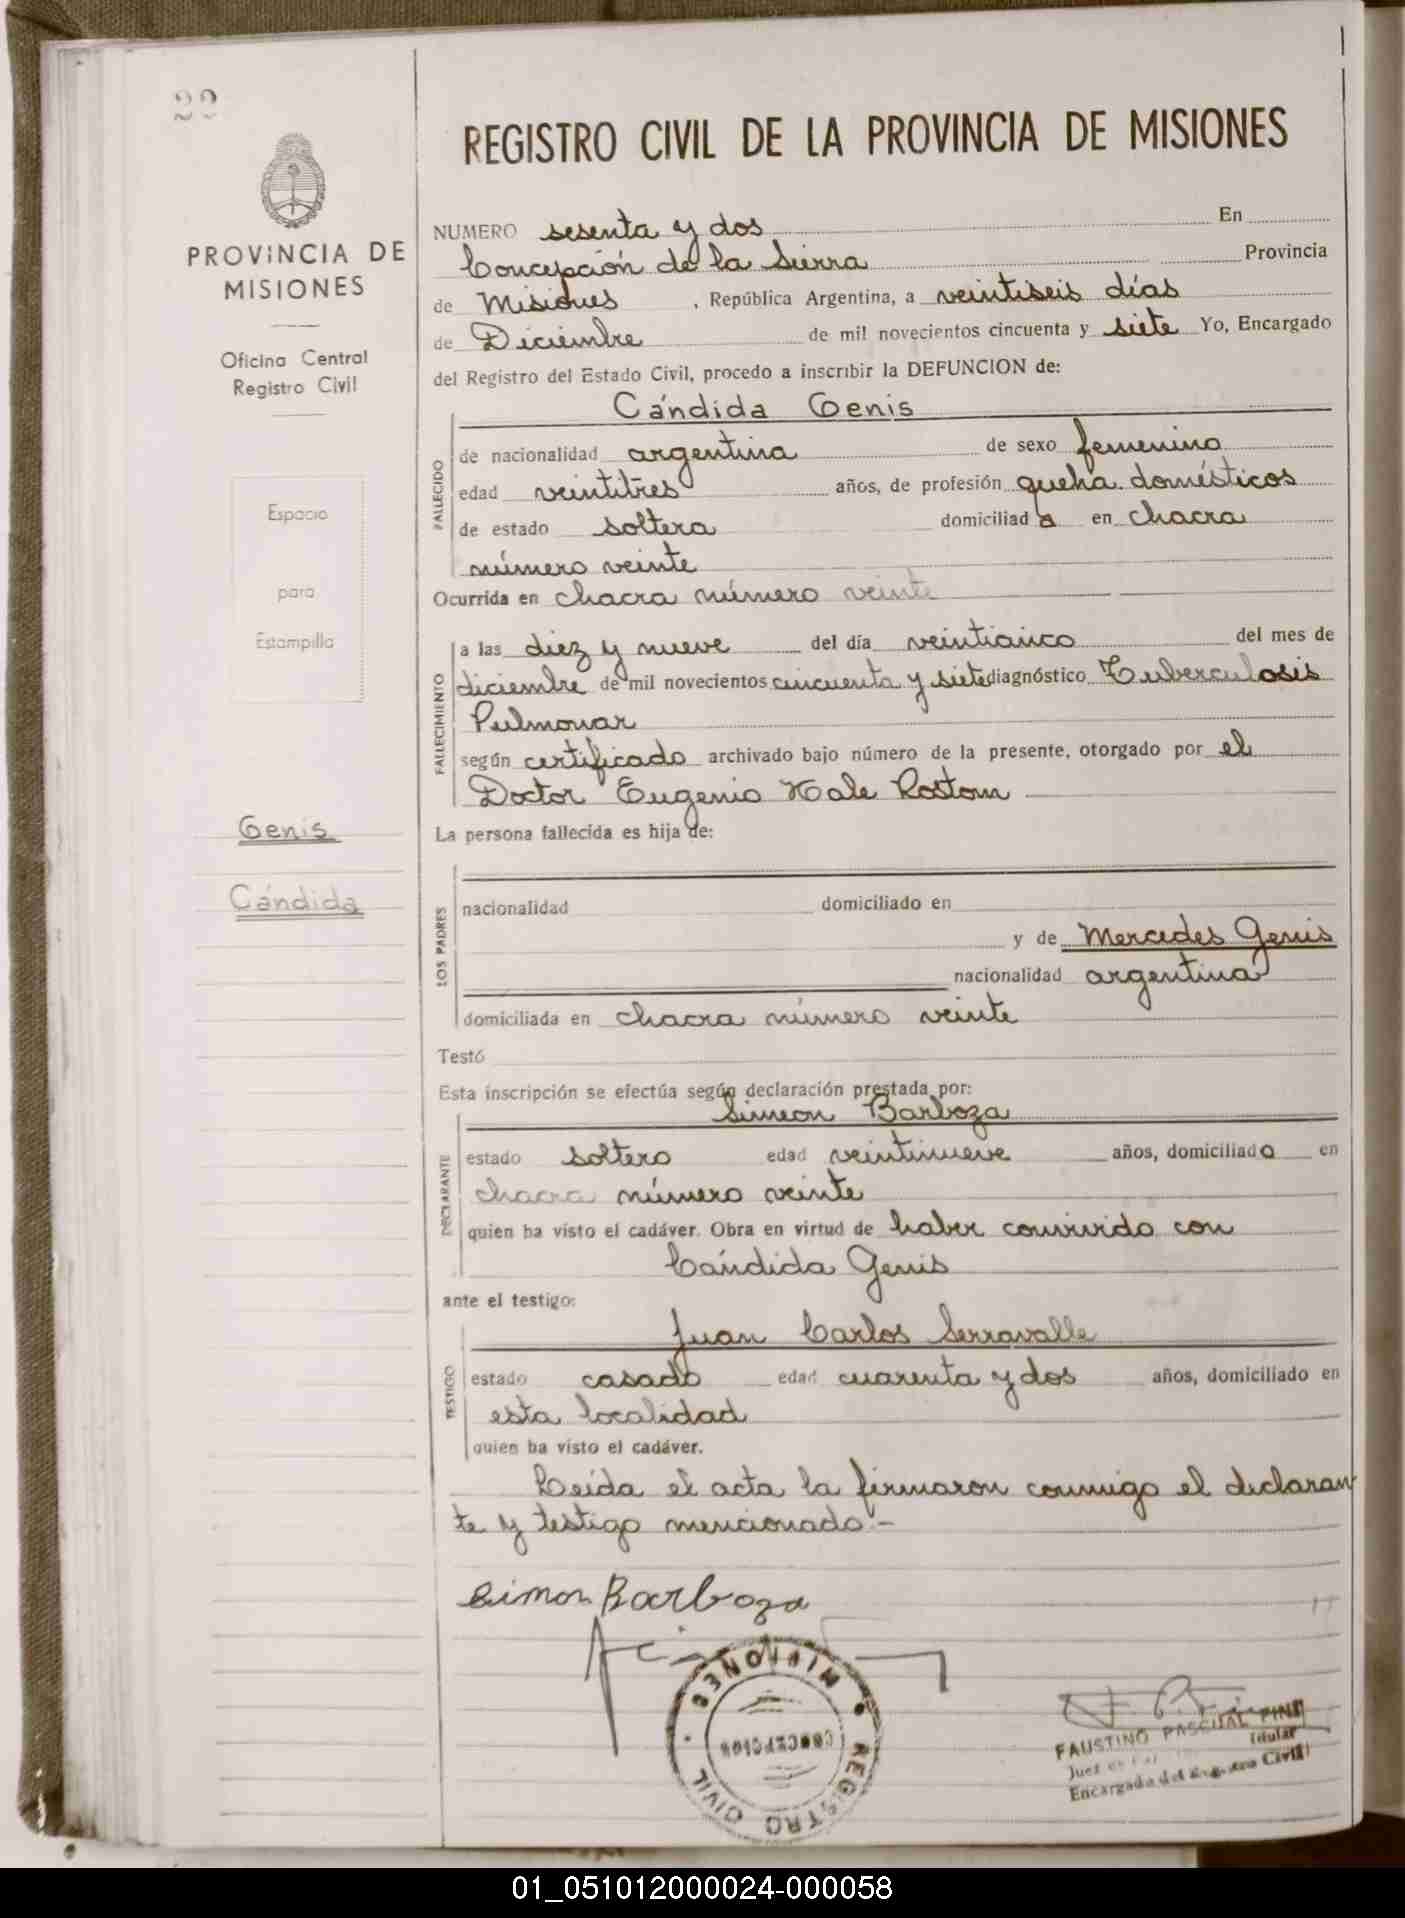 22
PROVINCIA DE
MISIONES
Oficina Central
Registro Civil
Espacio
para
Estampilla
Genis
Cándida
REGISTRO CIVIL DE LA PROVINCIA DE MISIONES
NUMERO sesenta y dos En
Concepción de la Sierra Provincia
de Misiones , República Argentina, a veintiseis días
de Diciembre de mil novecientos cincuenta y siete Yo, Encargado
del Registro del Estado Civil, procedo a inscribir la DEFUNCION de:
Cándida Genis
FALLECIDO
de nacionalidad argentina de sexo femenino
edad veintitres años, de profesión queha. domésticos
de estado soltera domiciliad a en chacra
número veinte
Ocurrida en chacra número veinte
FALLECIMIENTO
a las diez y nueve del día veinticinco del mes de
diciembre de mil novecientos cincuenta y siete diagnóstico Tuberculosis
Pulmonar
según certificado archivado bajo número de la presente, otorgado por el
Doctor Eugenio Kale Rostom
La persona fallecida es hija de:
LOS PADRES
nacionalidad domiciliado en
y de Mercedes Genis
nacionalidad argentina
domiciliada en chacra número veinte
Testó
Esta inscripción se efectúa según declaración prestada por:
Simeon Barboza
DECLARANTE
estado soltero edad veintinueve años, domiciliado en
chacra número veinte
quien ha visto el cadáver. Obra en virtud de haber convivido con
Cándida Genis
ante el testigo:
Juan Carlos Serravalle
TESTIGO
estado casado edad cuarenta y dos años, domiciliado en
esta localidad
quien ha visto el cadáver.
Leída el acta la firmaron conmigo el declaran
te y testigo mencionado.-
Simon Barboza
MISIONES
CONCEPCION
REGISTRO CIVIL
FAUSTINO PASCUAL PINI
Titular
Juez de Paz
Encargado del Registro Civil
01_051012000024-000058